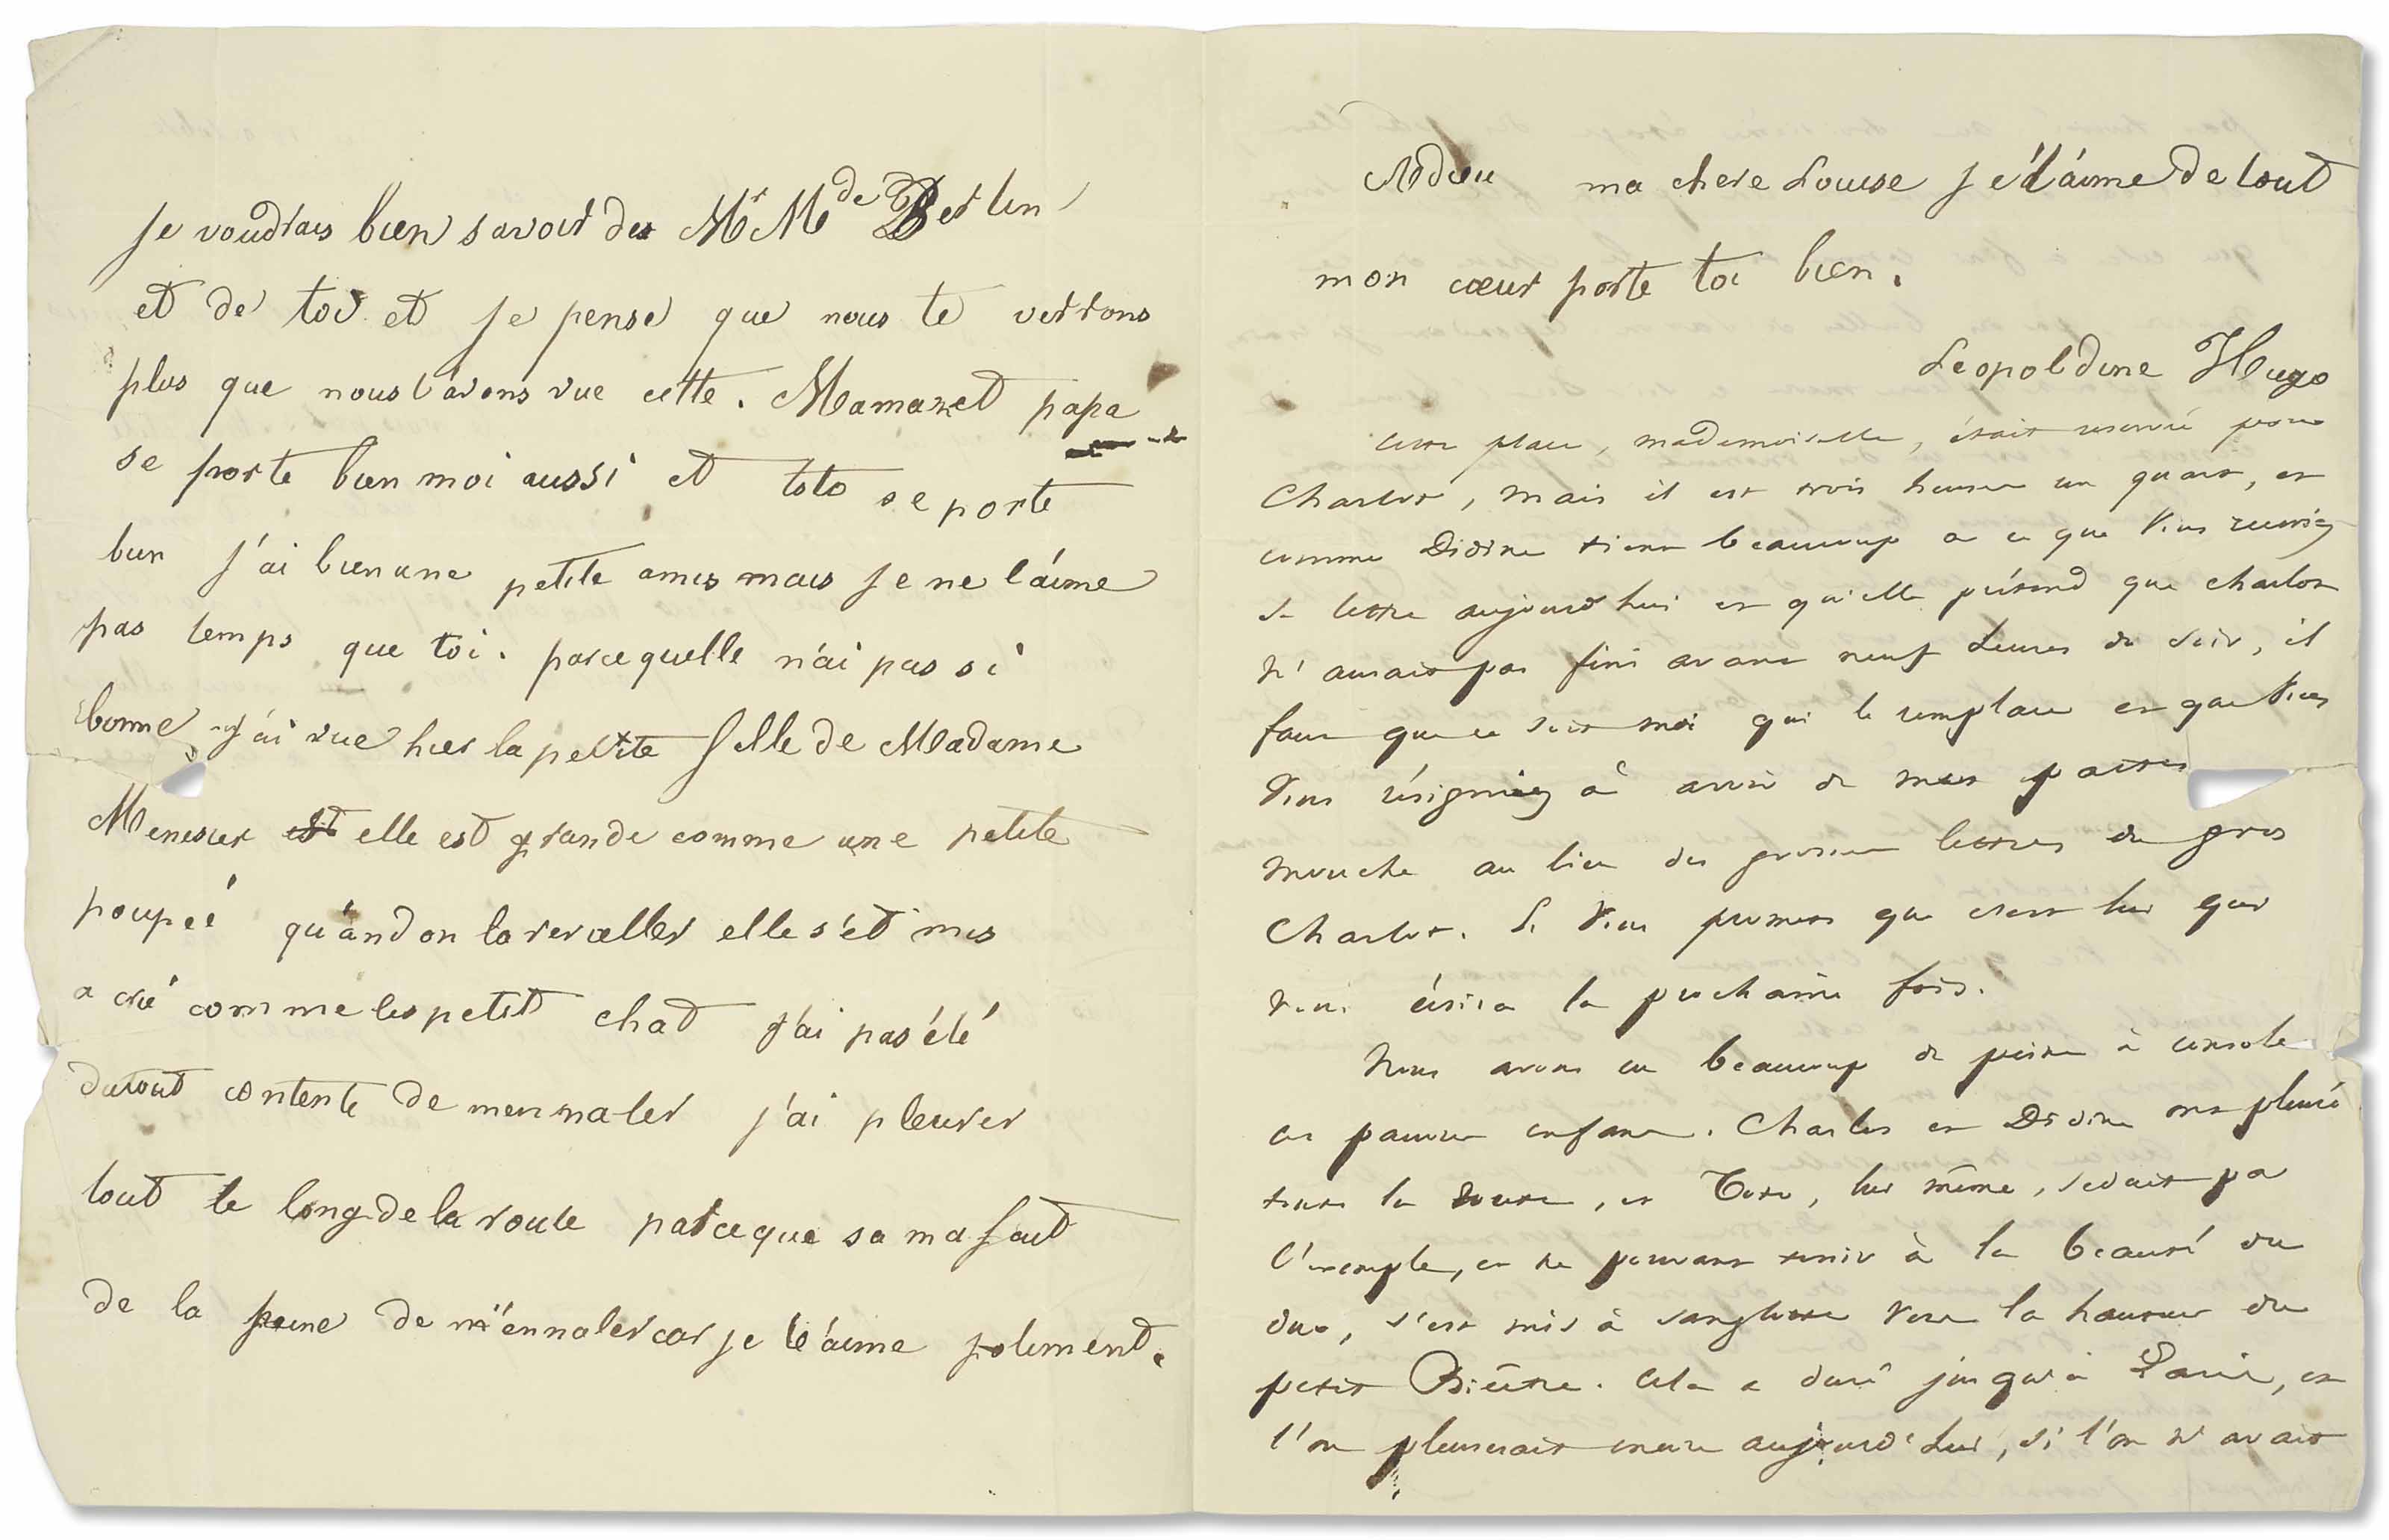 Je voudrais bien savoir des Mr Mde Bertin
et de toi et je pense que nous te verrons
plus que nous t'avons vue cette. Maman et papa
se porte bien moi aussi et toto se porte
bien j'ai bien une petite amis mais je ne l'aime
pas temps que toi. parcequelle n'ai pas si
bonne j'ai vue hier la petite fille de Madame
Menesier elle est grande comme une petite
poupeé qu'and on la reveiller elle s'et mis
a crié comme les petit chat j'ai pas été
dutout contente de mennaler j'ai pleurer
tout le long de la route parceque sa ma fait
de la peine de m'ennaler car je te'aime joliment.
Adieu ma chere Louise je t'aime de tout
mon cœur porte toi bien.
Leopoldine Hugo
Cette place, mademoiselle, était réservée pour
Charlot, mais il est trois heures un quart, et
comme Didine tient beaucoup à ce que vous receviez
sa lettre aujourd'hui et qu'elle prétend que Charlot
n'aurait pas fini avant neuf heures du soir, il
faut que ce soit moi qui le remplace et que vous
vous résigniez à avoir de mes pattes
mouche au lieu des grosses lettres du gros
Charlot. Je vous promets que c'est lui qui
vous écrira la prochaine fois.
Nous avons eu beaucoup de peine à consoler
ces pauvres enfants. Charles et Didine ont pleuré
toute la route, et Toto, lui même, séduit par
l'exemple, et ne pouvant tenir à la beauté du
duo, s'est mis à sangloter vers la hauteur du
petit Bicêtre. Cela a duré jusqu'à Paris, et
l'on pleurerait encore aujourd'hui, si l'on n'avait